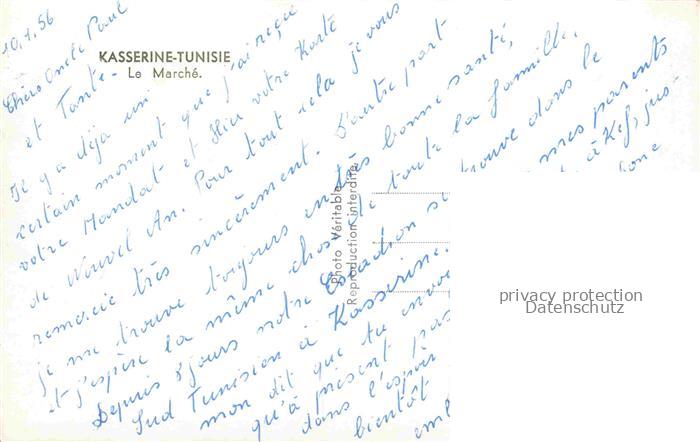 10.1.56
KASSERINE-TUNISIE
Le Marché.
Chers Oncle Paul
et Tante.
Il y a déjà un
certain moment que j'ai reçu
votre Mandat et Hier votre Karte
de Nouvel An. Pour tout cela je vous
remercie très sincèrement. D'autre part
je me trouve toujours en très bonne santé,
et j'espère la même chose de toute la famille.
Depuis 8 jours notre Escadron se trouve dans le
Sud Tunisien à Kasserine. mes parents
mon dit que tu envoy à Kef, jus-
qu'à présent pas
dans l'espoir
bientôt
Photo Véritable
Reproduction interdite
privacy protection
Datenschutz